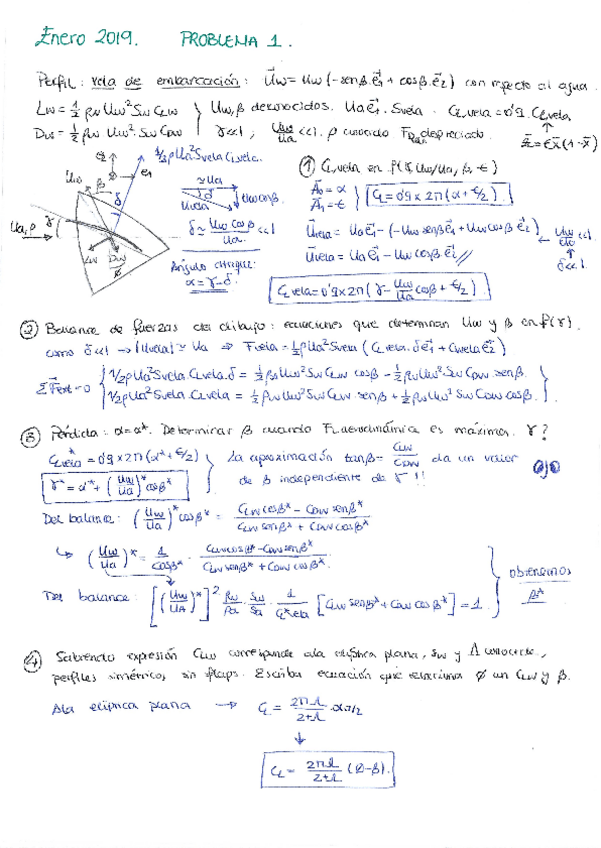 Enero 2019. PROBLEMA 1.
Perfil: vela de embarcación: U⃗w = Uw(-senβ e⃗1 + cosβ e⃗2) con respecto al agua.
Lw = 1/2 ρw Uw² Sw CLw
Dw = 1/2 ρw Uw² Sw CDw
Uw, β desconocidos. Ua e⃗1. Svela. CLvela = 0'9 · CLvela
γ<<1; Uw/Ua <<1. β conocido despreciado.
1/2 ρ Ua² Svela CLvela.
e2
e1
Uw
β
δ
Ua, ρ
γ
Lw
Dw
Ø
≈ Ua
δ
Uvela
Uw cosβ
δ ≈ Uw cosβ / Ua <<1
Ángulo ataque:
α = γ - δ
① CLvela en f(γ, Uw/Ua, β, ε)
A0 = α
A1 = -ε
CL = 0'9 × 2π(α + ε/2)
U⃗vela = Ua e⃗1 - (-Uw senβ e⃗1 + Uw cosβ e⃗2)
Uw/Ua <<1
δ<<1
U⃗vela = Ua e⃗1 - Uw cosβ e⃗2 //
CLvela = 0'9 × 2π(γ - Uw/Ua cosβ + ε/2)
② Balance de fuerzas del dibujo: ecuaciones que determinan Uw y β en f(γ).
como δ<<1 → |Uvela| ≈ Ua ⇒ Fvela = 1/2 ρ Ua² Svela (CLvela · δ e⃗1 + CLvela e⃗2)
ΣF⃗ext = 0
1/2 ρ Ua² Svela CLvela · δ = 1/2 ρw Uw² Sw CLw cosβ - 1/2 ρw Uw² Sw CDw senβ.
1/2 ρ Ua² Svela CLvela = 1/2 ρw Uw² Sw CLw · senβ + 1/2 ρw Uw² Sw CDw cosβ.
③ Pérdida: α = α*. Determinar β cuando F. aerodinámica es máxima. γ?
C*Lvela = 0'9 × 2π(α* + ε/2)
γ* = α* + (Uw/Ua)* cosβ*
La aproximación tanβ = CLw/CDw da un valor
de β independiente de γ !!
Del balance: (Uw/Ua)* cosβ* = (CLw cosβ* - CDw senβ*) / (CLw senβ* + CDw cosβ*)
↳ (Uw/Ua)* = 1/cosβ* · (CLw cosβ* - CDw senβ*) / (CLw senβ* + CDw cosβ*)
Del balance: [(Uw/UA)*]² ρw/ρa · Sw/Sa · 1/C*vela [CLw senβ* + CDw cosβ*] = 1.
obtenemos
β*
④ Sabiendo expresión CLw corresponde ala elíptica plana, Sw y Λ conocido,
perfiles simétricos, sin flaps. Escriba ecuación que relaciona Ø con CLw y β.
Ala elíptica plana → CL = 2πΛ / 2+Λ
↓
CL = 2πΛ / 2+Λ (Ø-β).